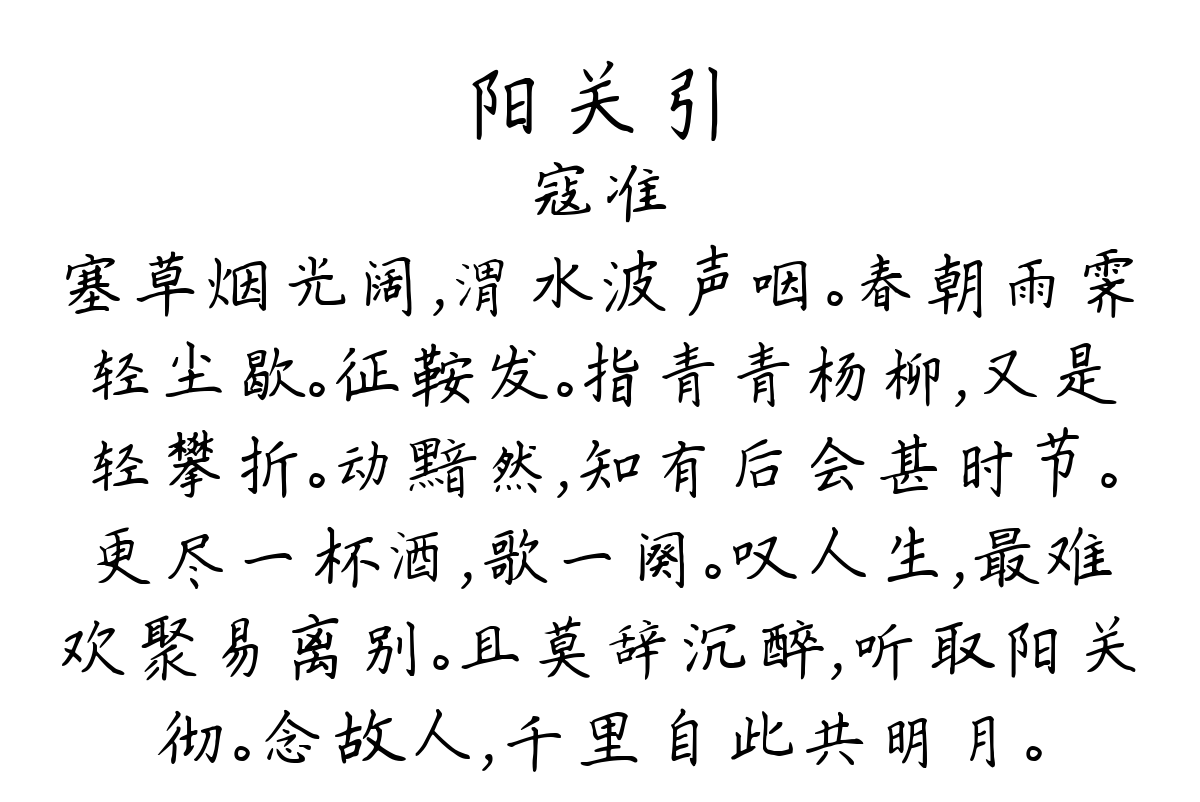 阳关引
寇准
塞草烟光阔,渭水波声咽。春朝雨霁
轻尘歇。征鞍发。指青青杨柳,又是
轻攀折。动黯然,知有后会甚时节。
更尽一杯酒,歌一阕。叹人生,最难
欢聚易离别。且莫辞沉醉,听取阳关
彻。念故人,千里自此共明月。